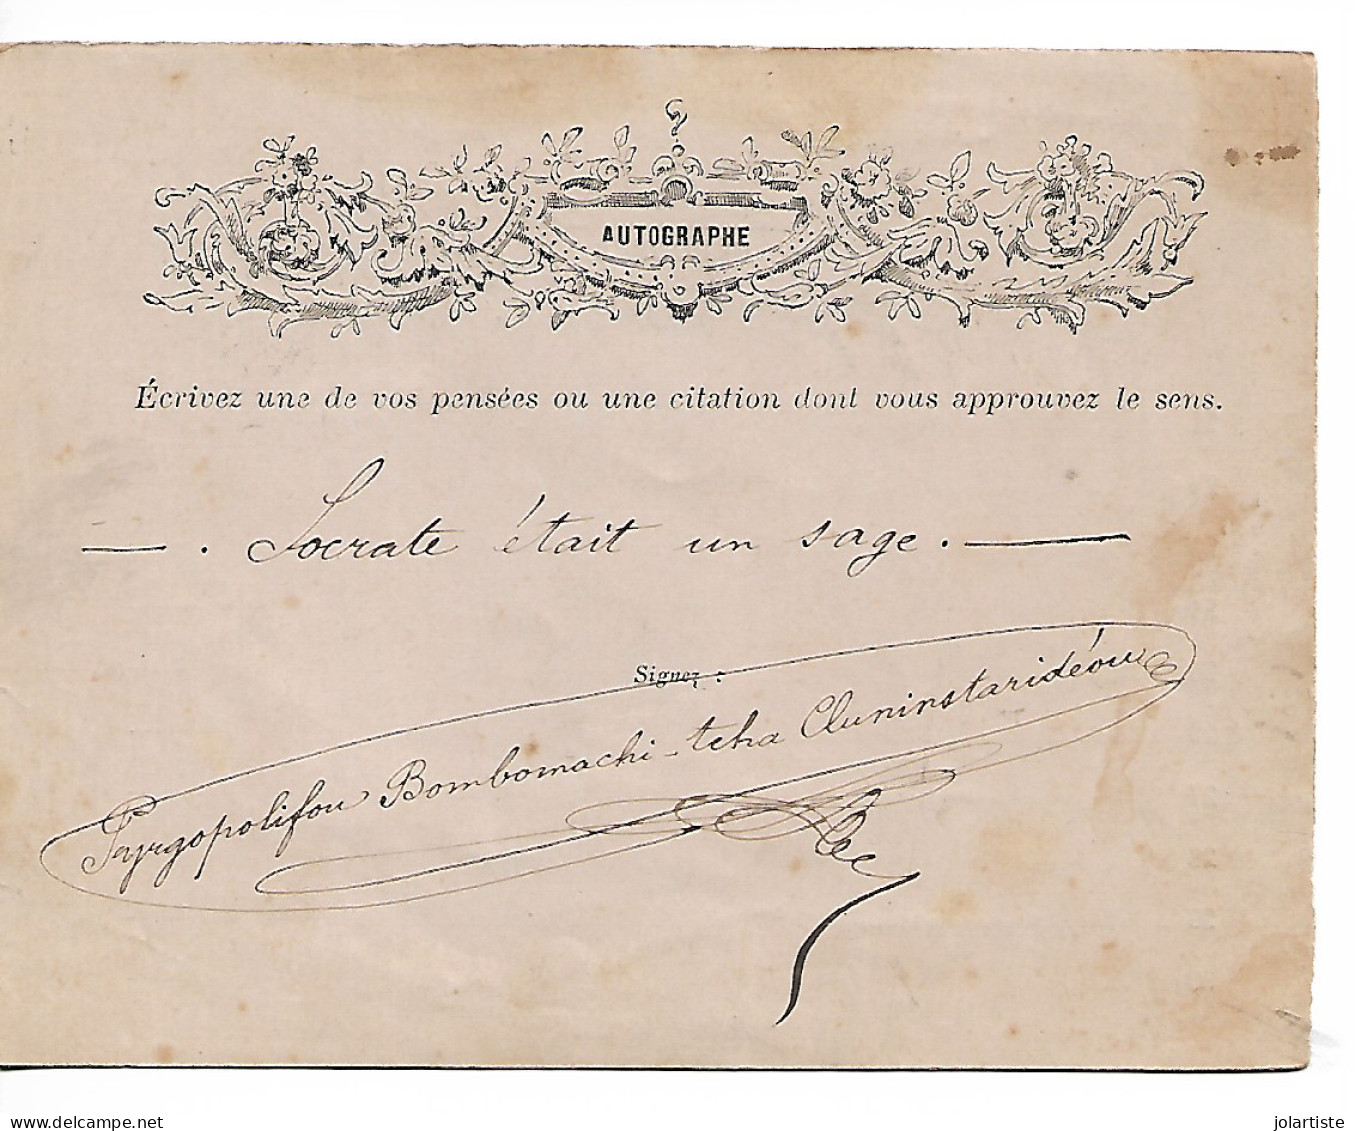 AUTOGRAPHE
Écrivez une de vos pensées ou une citation dont vous approuvez le sens.
— . Socrate était un sage . —
Signez :
Pyrgopolifou Bombomachi-tcha Cluninstaridéou
www.delcampe.net
jolartiste